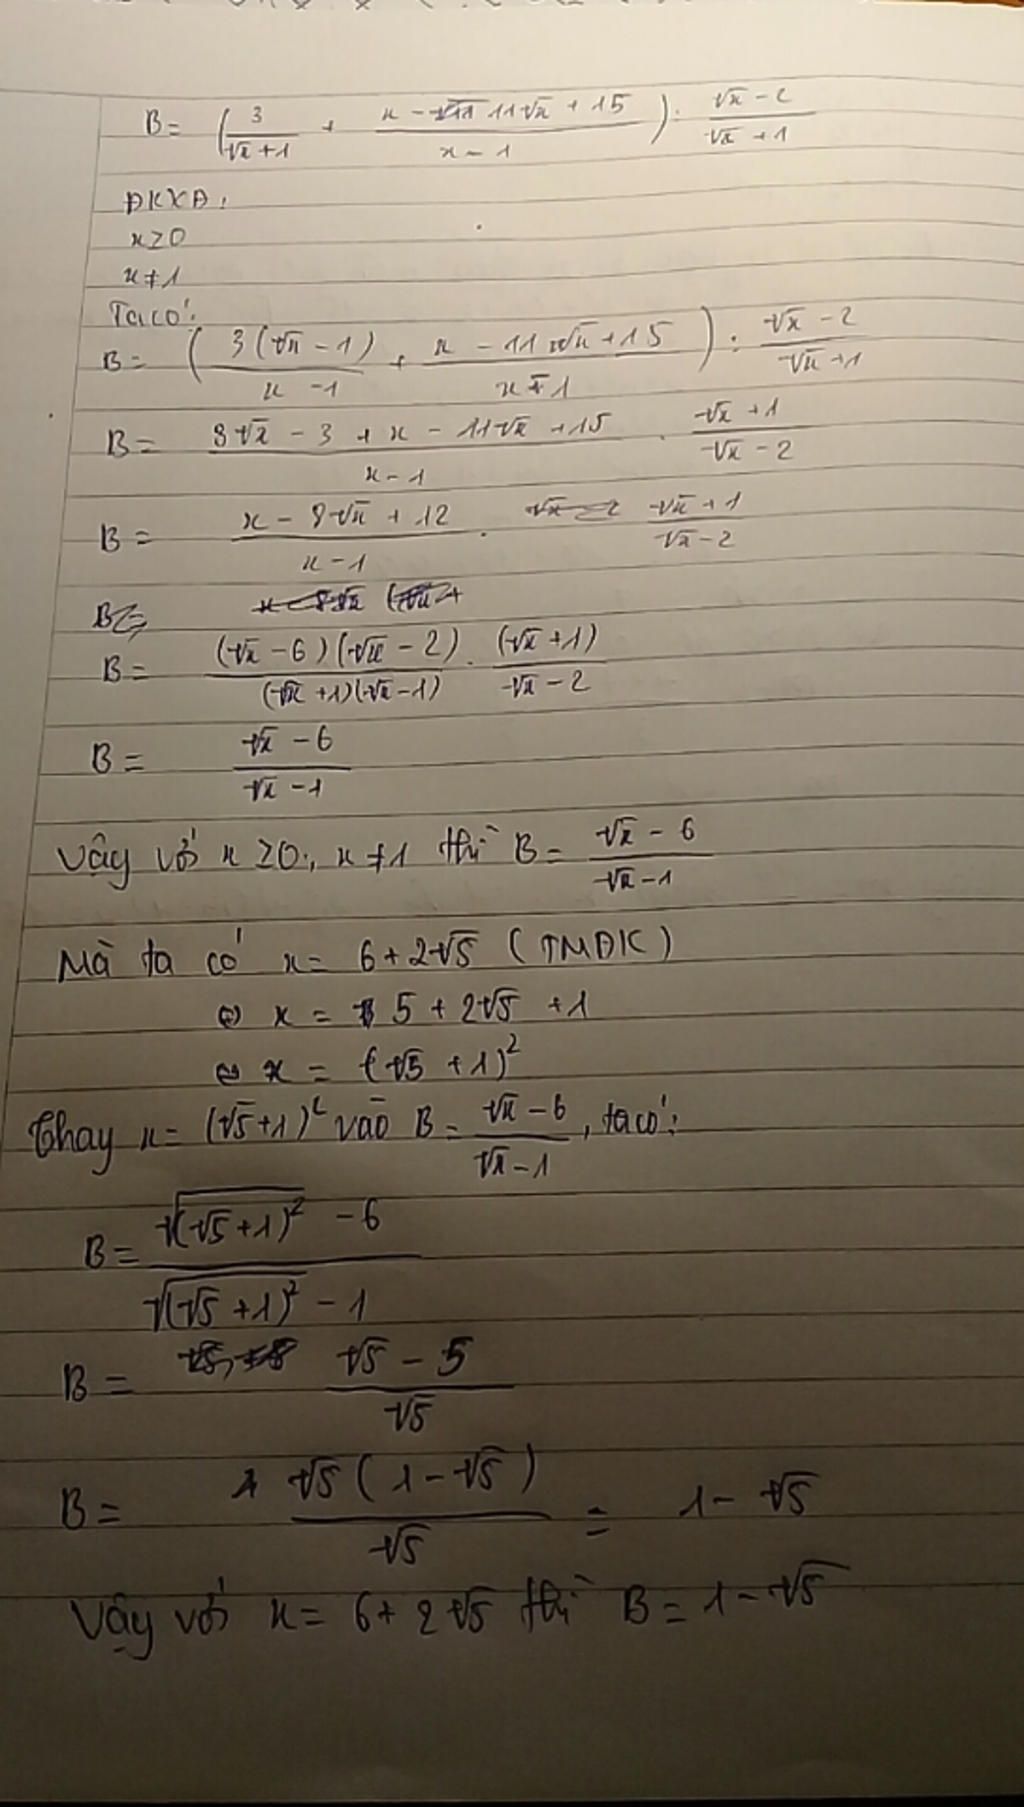 B = (3/(√x + 1) + (x - 11√x + 15)/(x - 1)) : (√x - 2)/(√x + 1)
ĐKXĐ:
x ≥ 0
x ≠ 1
Ta có:
B = (3(√x - 1)/(x - 1) + (x - 11√x + 15)/(x - 1)) : (√x - 2)/(√x + 1)
B = (3√x - 3 + x - 11√x + 15)/(x - 1) . (√x + 1)/(√x - 2)
B = (x - 8√x + 12)/(x - 1) . (√x + 1)/(√x - 2)
B =
B = (√x - 6)(√x - 2)/((√x + 1)(√x - 1)) . (√x + 1)/(√x - 2)
B = (√x - 6)/(√x - 1)
Vậy với x ≥ 0, x ≠ 1 thì B = (√x - 6)/(√x - 1)
Mà ta có x = 6 + 2√5 (TMĐK)
⇔ x = 5 + 2√5 + 1
⇔ x = (√5 + 1)²
Thay x = (√5 + 1)² vào B = (√x - 6)/(√x - 1), ta có:
B = (√(√5 + 1)² - 6)/(√(√5 + 1)² - 1)
B = (√5 - 5)/√5
B = √5(1 - √5)/√5 = 1 - √5
Vậy với x = 6 + 2√5 thì B = 1 - √5